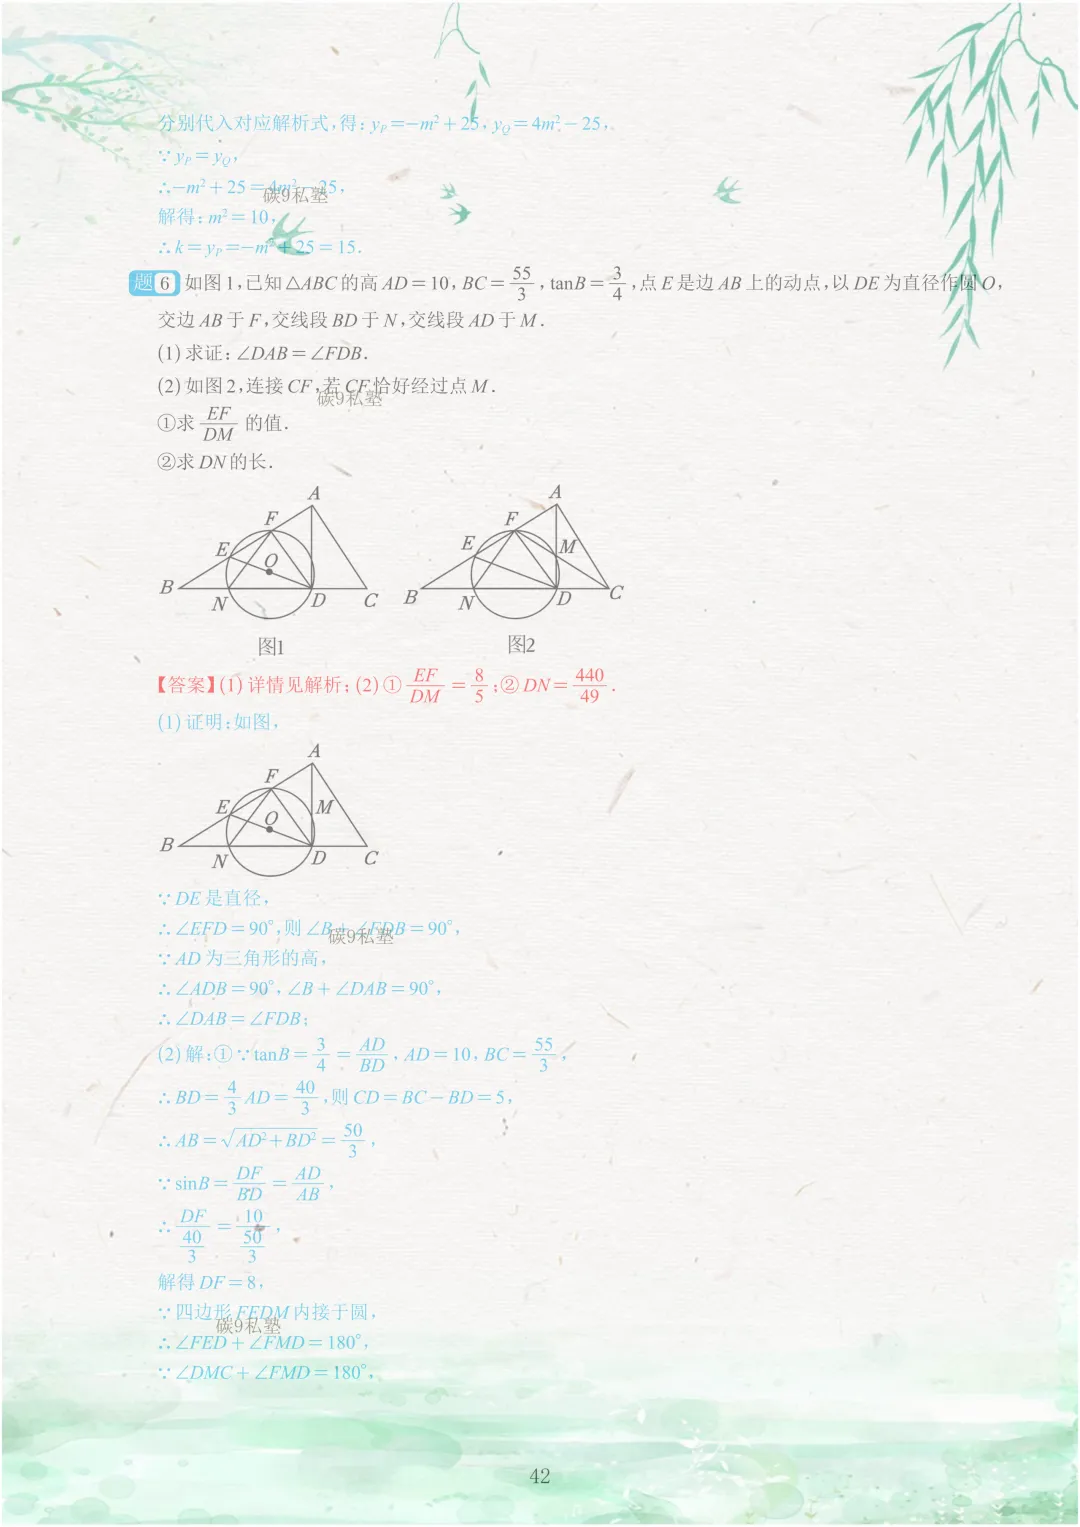 分别代入对应解析式,得:yP=-m²+25,yQ=4m²-25,
∵yP=yQ,
∴-m²+25=4m²-25,
碳9私塾
解得:m²=10,
∴k=yP=-m²+25=15.
题6 如图1,已知△ABC的高AD=10,BC=55/3,tanB=3/4,点E是边AB上的动点,以DE为直径作圆O,
交边AB于F,交线段BD于N,交线段AD于M.
(1)求证:∠DAB=∠FDB.
(2)如图2,连接CF,若CF恰好经过点M.
碳9私塾
①求EF/DM的值.
②求DN的长.
A
F
E
O
B
N
D
C
图1
A
F
E
M
B
N
D
C
图2
【答案】(1)详情见解析;(2)①EF/DM=8/5;②DN=440/49.
(1)证明:如图,
A
F
E
M
O
B
N
D
C
∵DE是直径,
∴∠EFD=90°,则∠B+∠FDB=90°,
碳9私塾
∵AD为三角形的高,
∴∠ADB=90°,∠B+∠DAB=90°,
∴∠DAB=∠FDB;
(2)解:①∵tanB=3/4=AD/BD,AD=10,BC=55/3,
∴BD=4/3AD=40/3,则CD=BC-BD=5,
∴AB=√(AD²+BD²)=50/3,
∵sinB=DF/BD=AD/AB,
∴DF/(40/3)=10/(50/3),
解得DF=8,
∵四边形FEDM内接于圆,
碳9私塾
∴∠FED+∠FMD=180°,
∵∠DMC+∠FMD=180°,
42